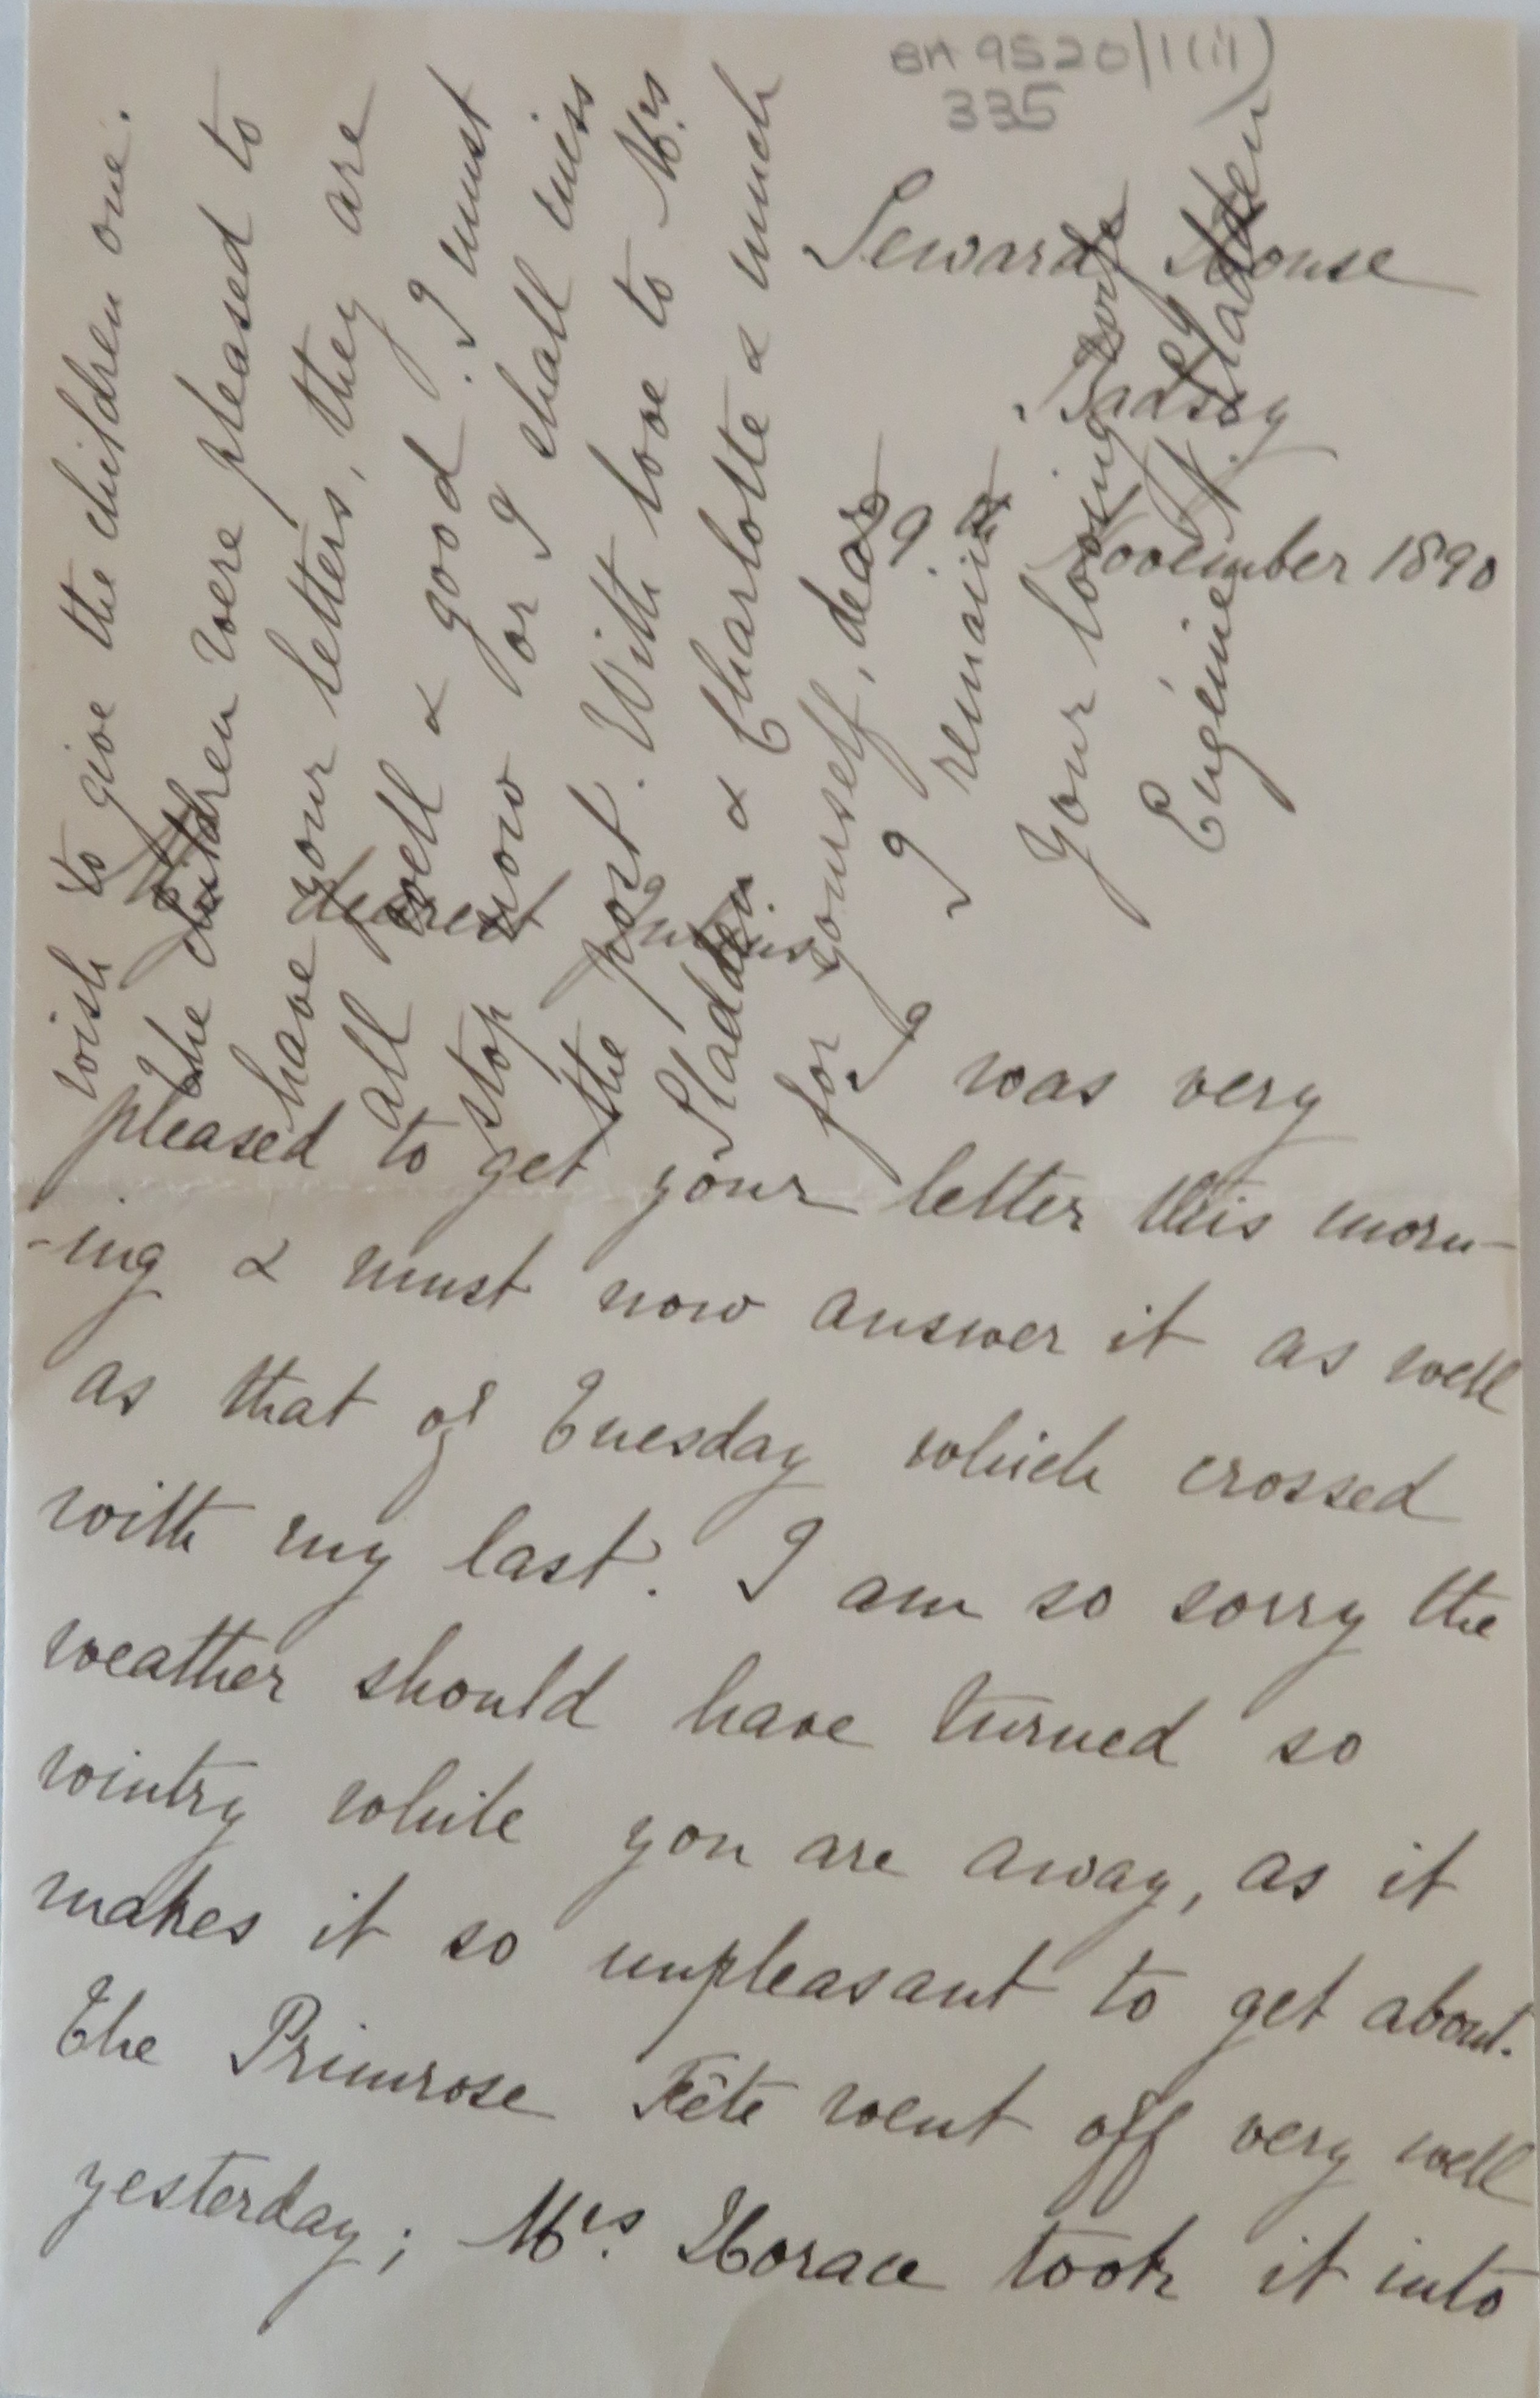 BA 9520/1(ii)
335
Seward House
Badsey
29.th November 1890
My dearest Julius,
I was very
pleased to get your letter this morn-
-ing & must now answer it as well
as that of Tuesday which crossed
with my last. I am so sorry the
weather should have turned so
wintry while you are away, as it
makes it so unpleasant to get about.
The Primrose Fête went off very well
yesterday; Mrs. Horace took it into
wish to give the children one.
The children were pleased to
have your letters, they are
all well & good. I must
stop now or I shall miss
the post. With love to Mrs.
Sladden & Charlotte & much
for yourself, dear
I remain
Your loving wife
Eugénie N. Sladden